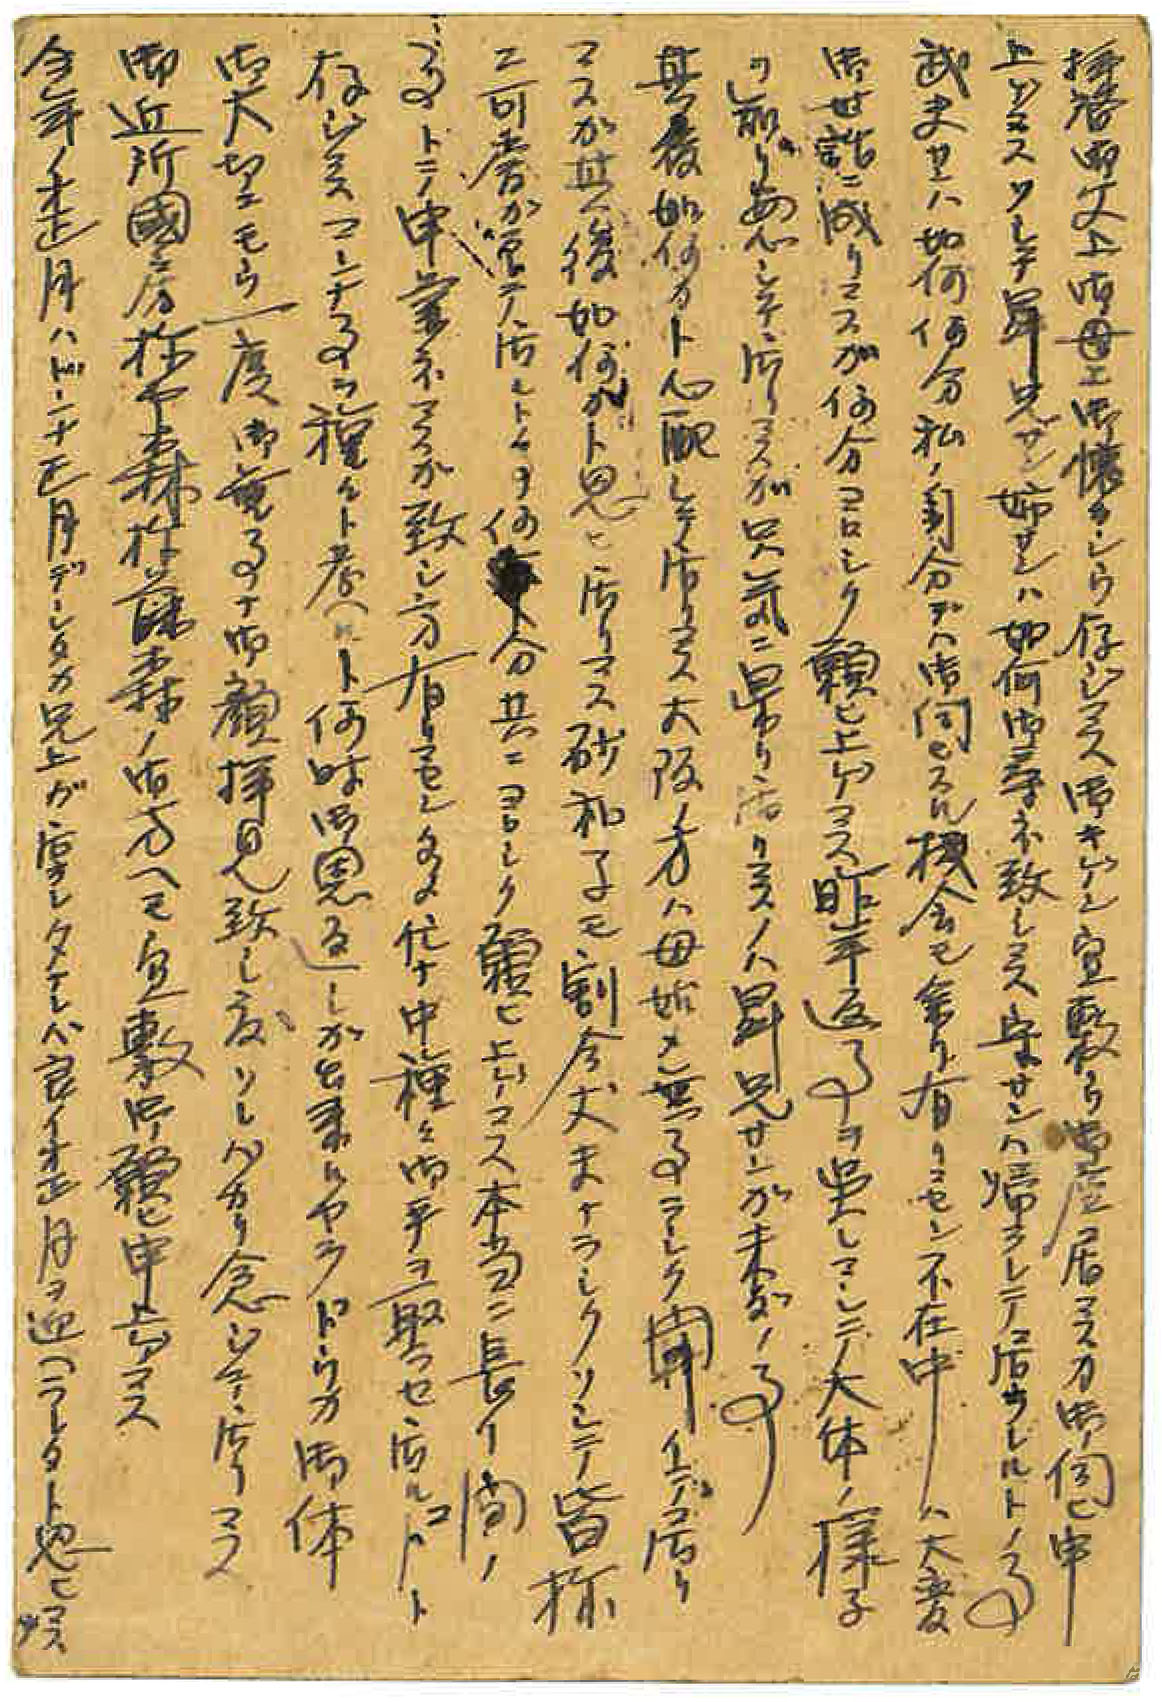 拝啓御父上御母上御懐カシウ存ジマス御キゲン宜敷ウ御座居マスカ御伺ヒ申
上ゲマスソシテ昇兄サン姉サンハ如何御尋ネ致シマス安サンハ帰ラレテ居ラレルトノ事
武夫サハ如何何分私ノ自分デハ御伺ヒスル機会モ余リ有リマセン不在中ハ大変
御世話ニ成リマスガ何分ヨロシク願ヒ上ゲマス昨年返事ヲ出シマシテ大体ノ様子
ヲ知リ安心シテ居リマスガ只気ニ掛リ居リマスノハ昇兄サンガ未ダノ事
其後如何カト心配シテ居リマス大阪ノ方ハ母姉モ無事ラシク聞イテ居リ
マスガ其ノ後如何カト思ヒ居リマス砂和子モ割合丈夫ナラシクソシテ皆様
ニ可愛ガラレテ居ルトカ何分共ニヨロシク願ヒ上ゲマス本当ニ長イ間ノ
事トテ申訳ネマスガ致シ方有リマセン多忙ナ中種々御手ヲ取ラセ居ルコト
存ジマスマシナ事ヲ種々ト考ヘルト何時御恩返シガ出来ルヤラドウカ御体
御大切ニモウ一度御無事ナ御顔拝見致シ度ソレバカリ念ジテ居リマス
御近所國房様ヤ森様藤森ノ御方ヘモ宜敷御願ヒ申上ゲマス
今年ノオ正月ハドンナ正月デシタカ兄上ガ居ラレタナレバ良イオ正月ヲ迎ヘラレタト思ヒマス